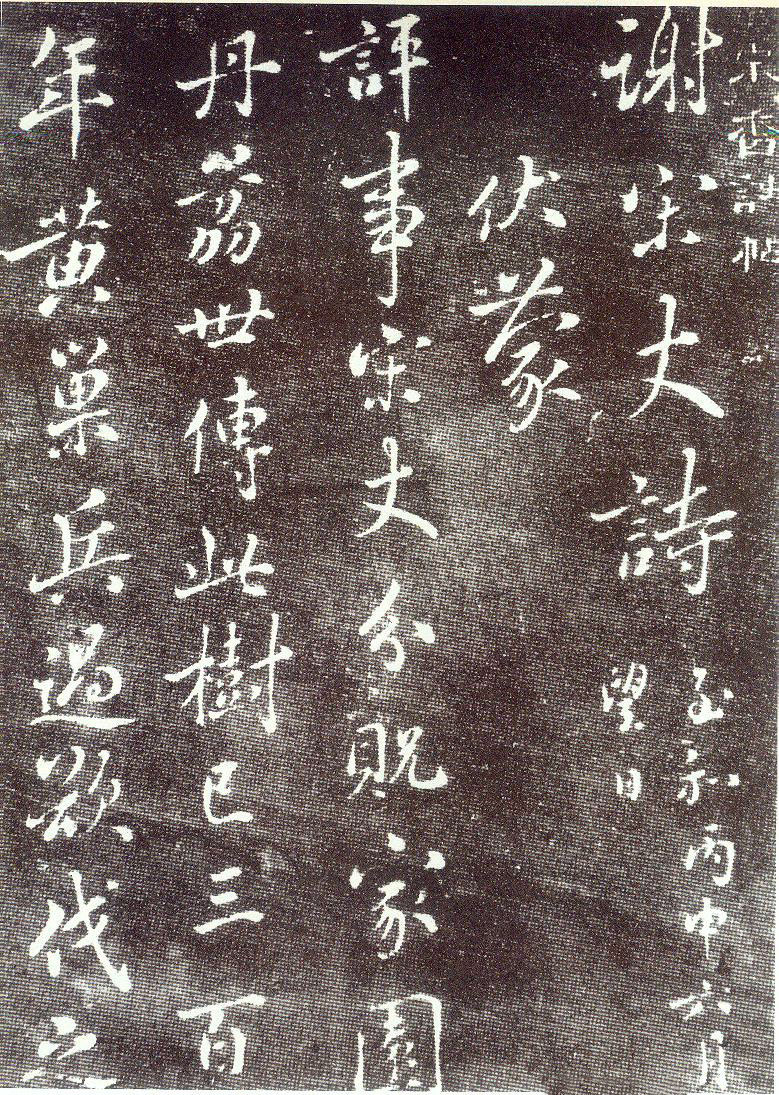 謝宋丈詩
至和丙申六月
望日
伏蒙
評事宋丈分貺家園
丹荔世傳此樹已三百
年黄巢兵過欲伐之